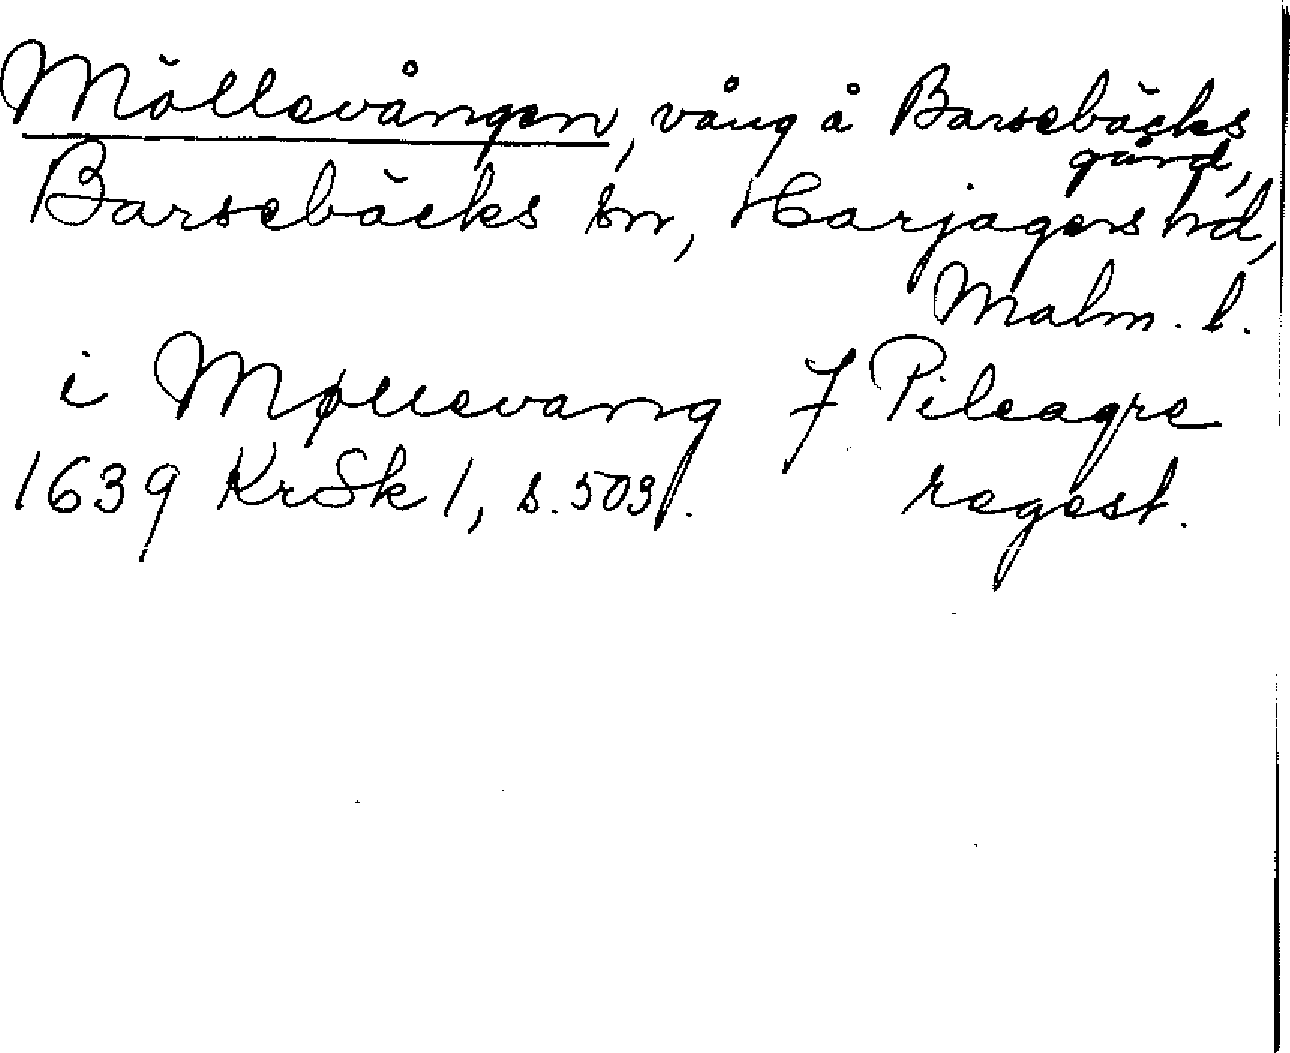 Möllevången, vång å Barsebäcks
gård,
Barsebäcks sn, Harjagers hd,
Malm. l.
i Møllevang J Pileagre
1639 KrSk 1, s. 503. regest.